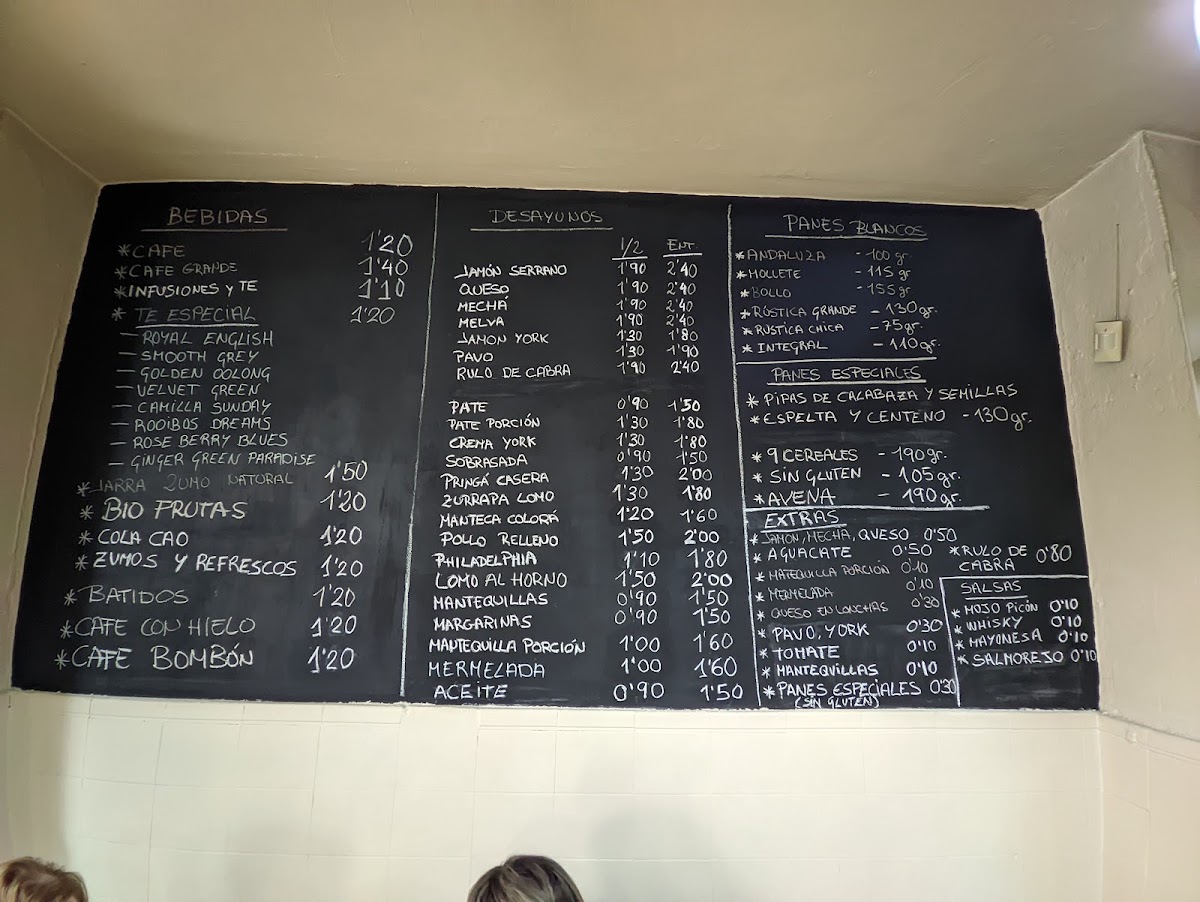 BEBIDAS
*CAFE 1'20
*CAFE GRANDE 1'40
*INFUSIONES Y TE 1'10
* TE ESPECIAL 1'20
— ROYAL ENGLISH
— SMOOTH GREY
— GOLDEN OOLONG
— VELVET GREEN
— CAMILLA SUNDAY
— ROOIBOS DREAMS
— ROSE BERRY BLUES
— GINGER GREEN PARADISE
* JARRA ZUMO NATURAL 1'50
* BIO FRUTAS 1'20
* COLA CAO 1'20
* ZUMOS Y REFRESCOS 1'20
* BATIDOS 1'20
* CAFE CON HIELO 1'20
* CAFE BOMBÓN 1'20
DESAYUNOS
1/2 ENT.
JAMÓN SERRANO 1'90 2'40
QUESO 1'90 2'40
MECHÁ 1'90 2'40
MELVA 1'90 2'40
JAMON YORK 1'30 1'80
PAVO 1'30 1'90
RULO DE CABRA 1'90 2'40
PATE 0'90 1'50
PATE PORCIÓN 1'30 1'80
CREMA YORK 1'30 1'80
SOBRASADA 0'90 1'50
PRINGÁ CASERA 1'30 2'00
ZURRAPA LOMO 1'30 1'80
MANTECA COLORÁ 1'20 1'60
POLLO RELLENO 1'50 2'00
PHILADELPHIA 1'10 1'80
LOMO AL HORNO 1'50 2'00
MANTEQUILLAS 0'90 1'50
MARGARINAS 0'90 1'50
MANTEQUILLA PORCIÓN 1'00 1'60
MERMELADA 1'00 1'60
ACEITE 0'90 1'50
PANES BLANCOS
*ANDALUZA - 100 gr.
*MOLLETE - 115 gr
*BOLLO - 155 gr
*RÚSTICA GRANDE - 130gr.
*RUSTICA CHICA - 75gr.
* INTEGRAL - 110gr.
PANES ESPECIALES
* PIPAS DE CALABAZA Y SEMILLAS
*ESPELTA Y CENTENO - 130gr.
* 9 CEREALES - 190gr.
* SIN GLUTEN - 105gr.
*AVENA - 190gr.
EXTRAS
*JAMON, MECHA, QUESO 0'50
* AGUACATE 0'50
* MATEQUILLA PORCIÓN 0'10
* MERMELADA 0'10
* QUESO EN LONCHAS 0'30
* PAVO, YORK 0'30
*TOMATE 0'10
* MANTEQUILLAS 0'10
* PANES ESPECIALES 0'30
(SIN GLUTEN)
*RULO DE CABRA 0'80
SALSAS
* MOJO PICÓN 0'10
* WHISKY 0'10
* MAYONESA 0'10
* SALMOREJO 0'10